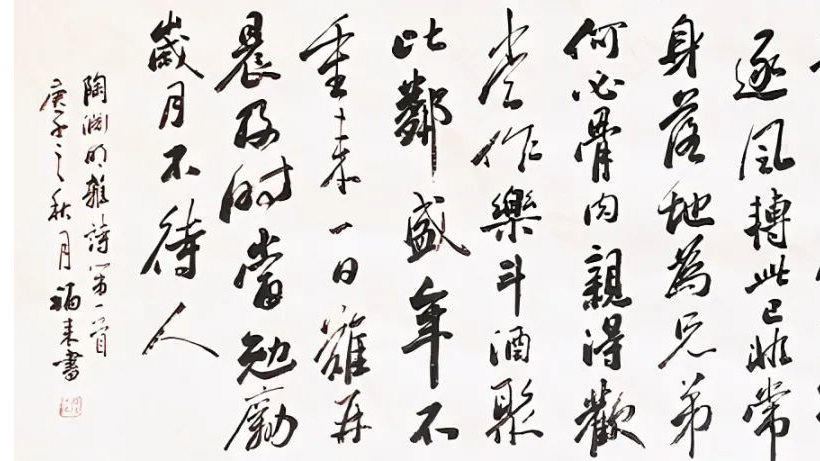 逐風轉此已非常
身落地為兄弟
何必骨肉親得歡
當作樂斗酒聚
比鄰盛年不
重来一日難再
晨及时當勉勵
歲月不待人
陶淵明雜詩第一首
庚子之秋月福来書